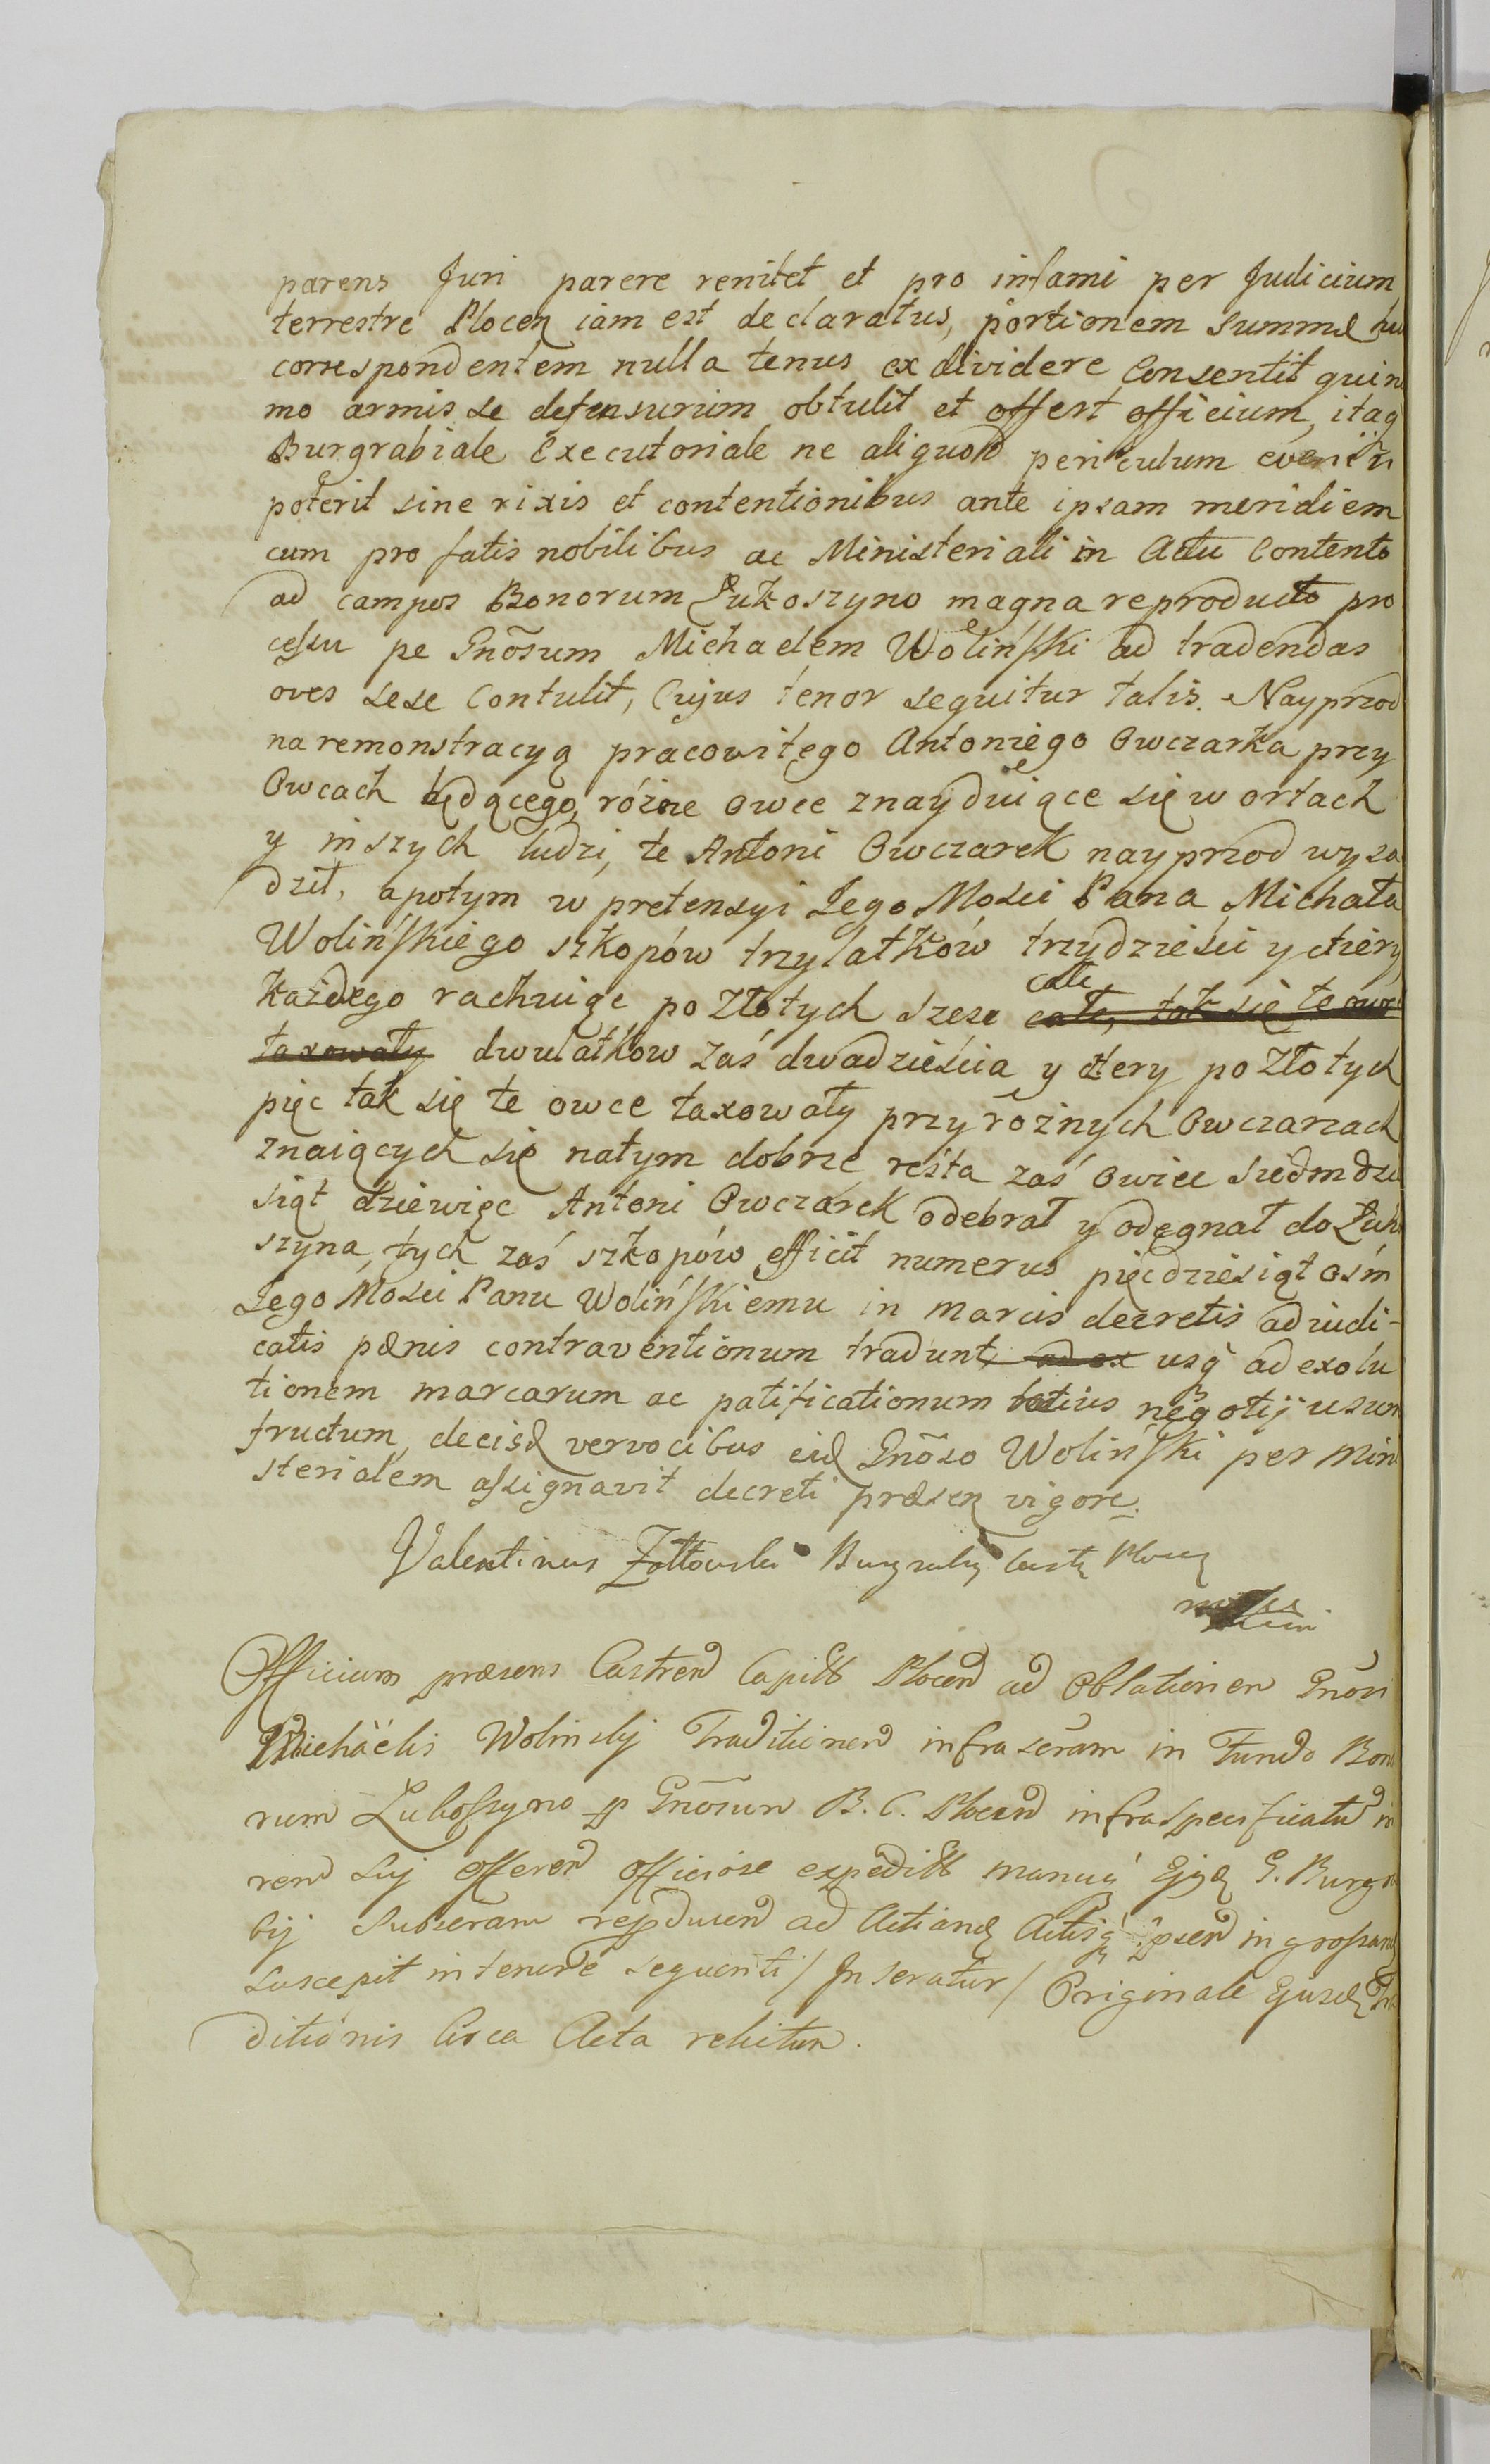 parens Juri parere renitet et pro infami per Judicium
terrestre Plocen iam est declaratus, portionem summæ
correspondentem nulla tenus ex dividere Consentit quin
mo armis se defensurum obtulit et offert officium, itaq
Burgrabiale Executoriale ne aliquod periculum
poterit sine rixis et contentionibus ante ipsam meridiem
cum pro fatis nobilibus ac Ministeriali in Actu Contento
ad campos Bonorum Łukoszyno magna reproducto pro
cessu pe Gnõsum Michaelem Woliński ad tradendas
oves sese Contulit, Cujus tenor sequitur talis. Nayprzod
na remonstracyą pracowitego Antoniego Owczarka przy
Owcach będącego, różne owce znayduiące się w ortach
y inszych ludzi, te Antoni Owczarek nayprzod wysa
dził, a potym w pretensyi Jego Mosci Pana Michała
Wolińskiego szkopów trzylatków trzydzieści y cztery
każdego rachuiąc po Złotych szesc całe całe, tak się te owce
taxowały dwulatków zaś dwadzieścia y cztery po Złotych
pięc tak się te owce taxowały przy rożnych Owczarzach
znaiących się natym dobrze reszta zaś owiec siedmdzie
siąt dziewięc Antoni Owczarek odebrał y odegnał do Łuko
szyna, tych zaś szkopów efficit numerus pięcdziesiąt ośm
Jego Mosci Panu Wolińskiemu in marcis decretis adiudi-
catis pænis contraventionum tradunt, ad ex usq ad exolu
tionem marcarum ac patificationum totius negotij usum
fructum, decisæ vervocibus eid Gnõso Woliński per Mini
sterialem assignavit decreti præsen vigore.
Valentinus Żółtowski Burgrabi Castr Plocen
Officium præsens Castren Capitt Plocen ad Oblationem Gnõsi
Michäelis Wolinskj Traditionem infrascram in Fundo Bono
rum Lukoszyno p Gnõsum B. C. Plocen infraspecificatum
ren Suj offeren officiose expeditt manuq Ejqd G. Burgra
bij Subscram reproducen ad Actiand Actisq ingrossand
suscepit in tenore sequenti / Inseratur / Originale Ejusd Tra
ditionis Circa Acta relictum.